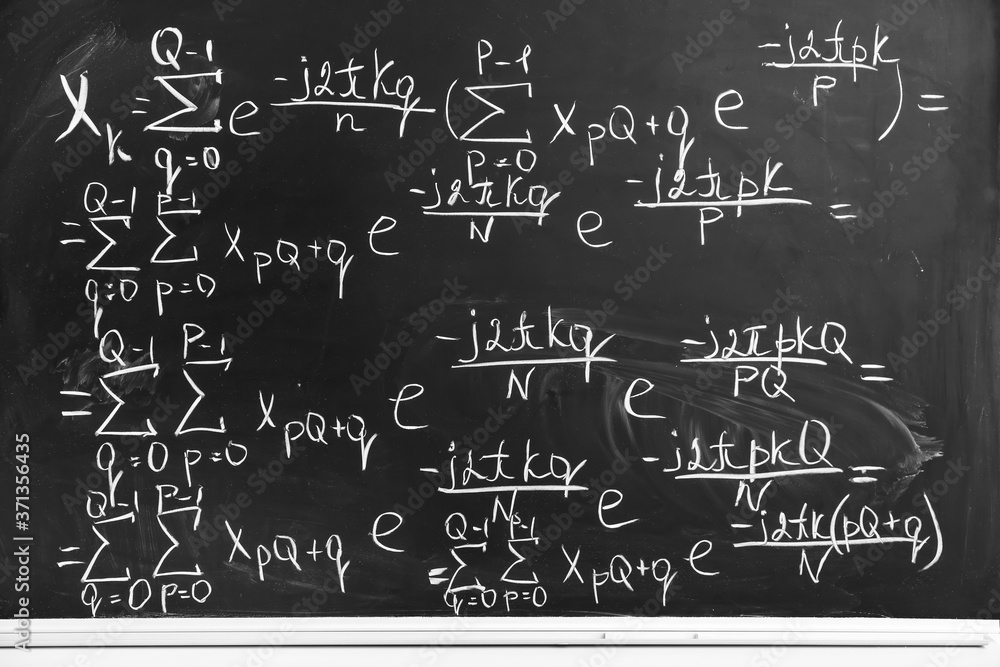 X_k = \sum_{q=0}^{Q-1} e^{\frac{-j2πkq}{n}} ( \sum_{p=0}^{P-1} x_{pQ+q} e^{\frac{-j2πpk}{P}} ) =
= \sum_{q=0}^{Q-1} \sum_{p=0}^{P-1} x_{pQ+q} e^{\frac{-j2πkq}{N}} e^{\frac{-j2πpk}{P}} =
= \sum_{q=0}^{Q-1} \sum_{p=0}^{P-1} x_{pQ+q} e^{\frac{-j2πkq}{N}} e^{\frac{-j2πpkQ}{PQ}} =
= \sum_{q=0}^{Q-1} \sum_{p=0}^{P-1} x_{pQ+q} e^{\frac{-j2πkq}{N}} e^{\frac{-j2πpkQ}{N}} =
= \sum_{q=0}^{Q-1} \sum_{p=0}^{P-1} x_{pQ+q} e^{\frac{-j2πk(pQ+q)}{N}}
Adobe Stock | #371356435